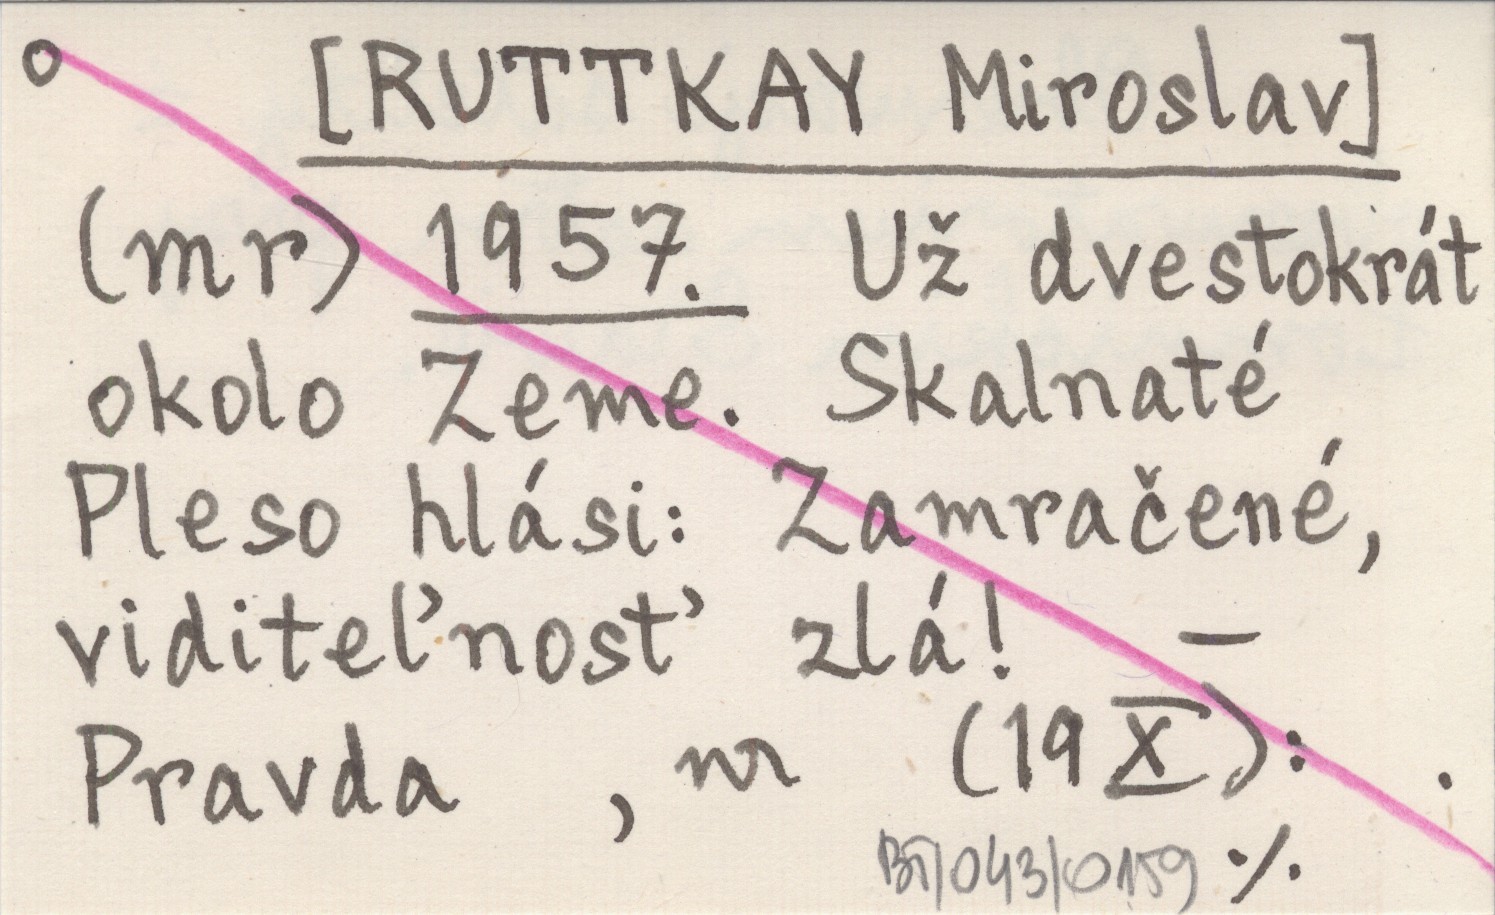 [RUTTKAY Miroslav]
(mr) 1957. Už dvestokrát
okolo Zeme. Skalnaté
Pleso hlási: Zamračené,
viditeľnosť zlá! —
Pravda , nr (19 X): .
BT/043/0159 ./.